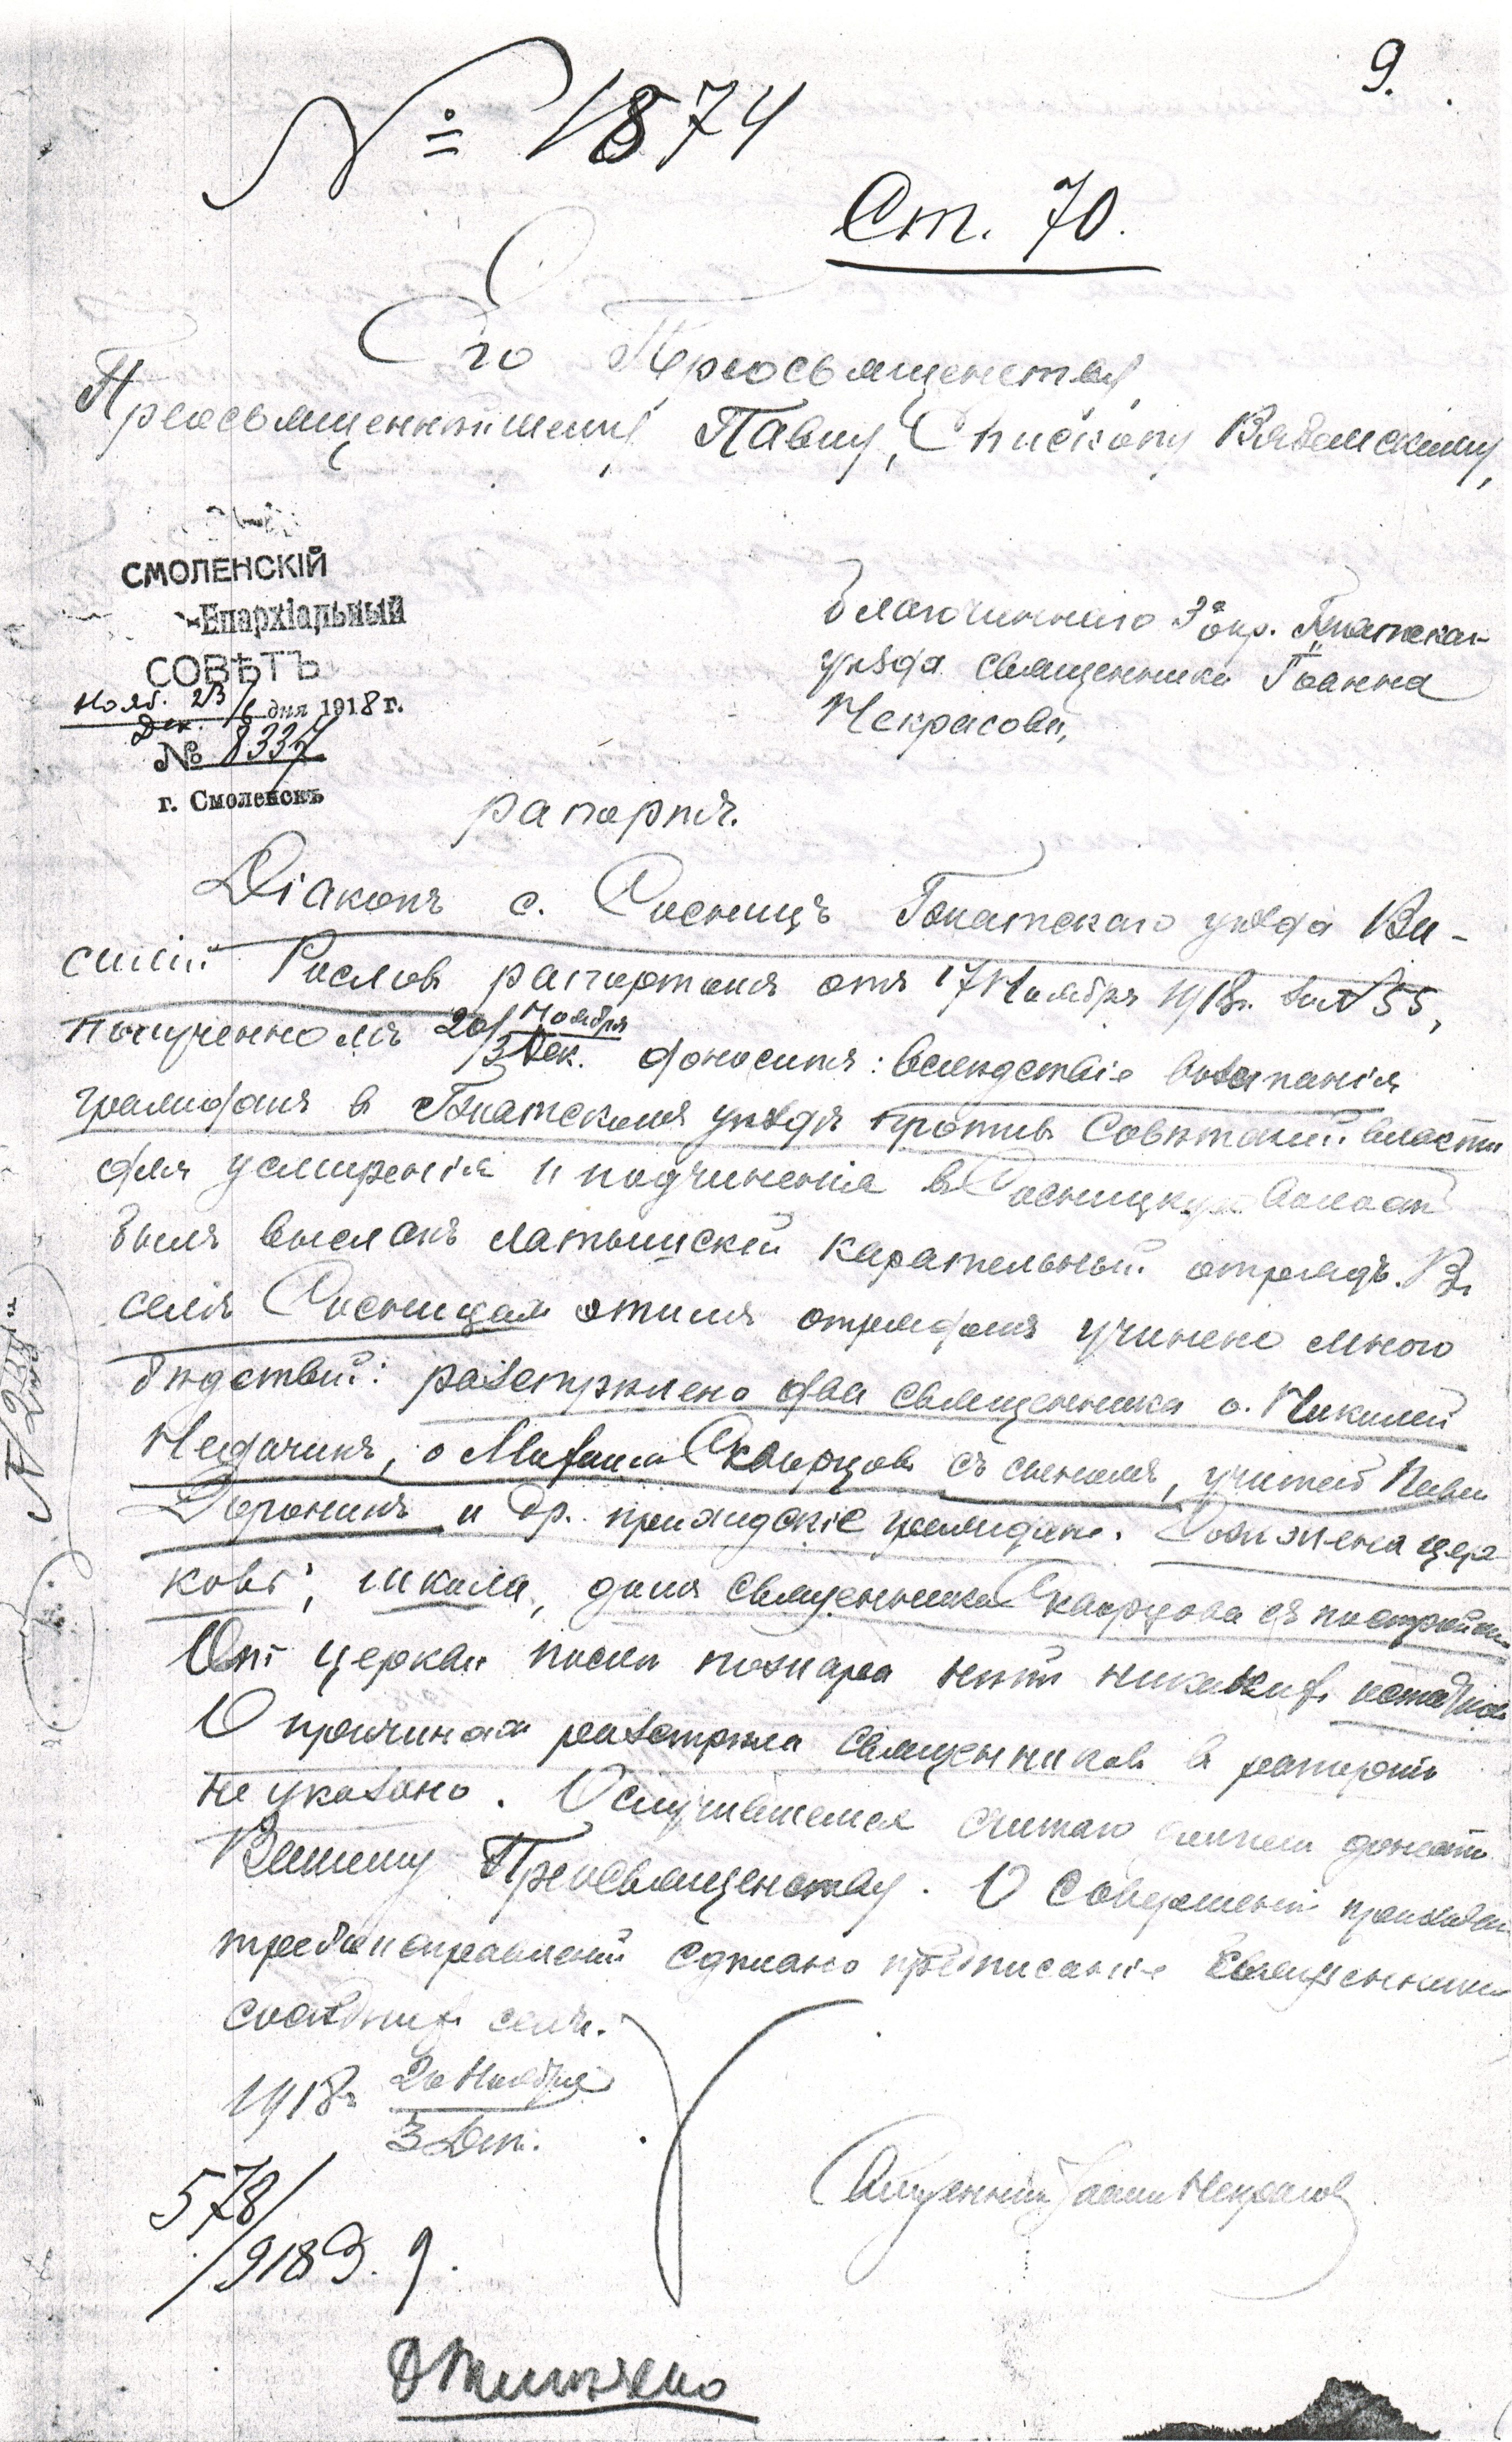 9.
№ 1874
Ст. 70.
Его Преосвященству,
Преосвященнѣйшему Павлу, Епископу Вяземскому,
СМОЛЕНСКІЙ
Епархіальный
СОВѢТЪ
Нояб. 23/
Дек. 6 дня 1918 г.
№ 8337
г. Смоленскъ
Благочиннаго 3го окр. Гжатскаго
уѣзда священника Іоанна
Некрасова,
рапортъ.
Діаконъ с. Сосницъ Гжатскаго уѣзда Ва-
силій Рослов рапортомъ отъ 17 Ноября 1918г. за № 55,
полученномъ 20 Ноября
/3 Дек. доноситъ: вслѣдствіе возстанія
граждан в Гжатскомъ уѣздѣ против Совѣтской власти
для усмиренія и подчиненія в Сосницкую волость
былъ высланъ латышскій карательный отрядъ. Въ
селѣ Сосницах этимъ отрядомъ учинено много
бѣдствій: разстрѣлено два священника о. Николай
Недачинъ, о Скворцов съ сыномъ, учитель Павел
Доронинъ и др. приходскіе граждане. Сожжена цер
ковь, школа, домъ священника Скворцова съ постройками
От церкви послѣ пожара нѣтъ никаких остатков
О причинах разстрѣла священников в рапортѣ
не указано. О случившемся считаю долгом донести
Вашему Преосвященству. О совершеніи приходских
треб и исправленій сдѣлано предписаніе священникам
сосѣдних селъ.
1918г. 20 Ноября
3 Дек.
Священник Іоанн Некрасов
578/
/918 Э. 9.
Отпечатано